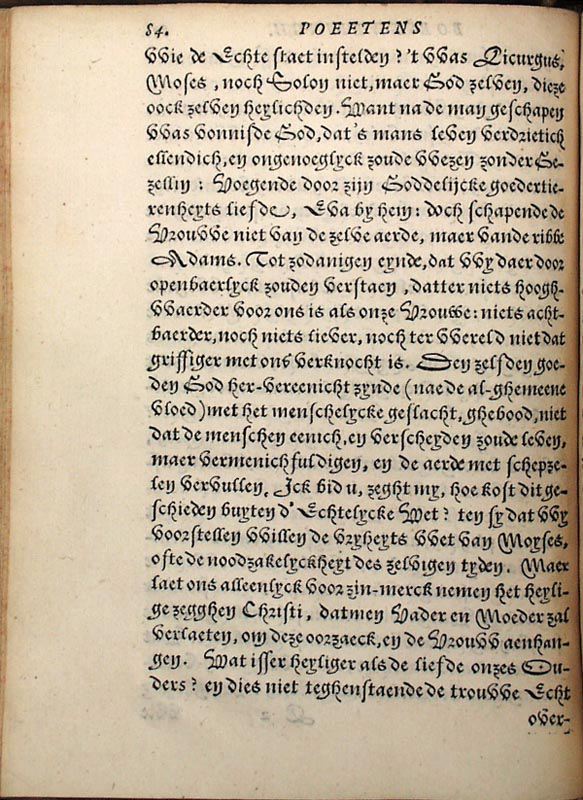 84. POEETENS
VVie de Echte staet instelden? 't VVas Licurgus,
Moses, noch Solon niet, maer God zelven, dieze
oock zelven heylichden. Want na de man geschapen
VVas vonnisde God, dat's mans leven verdrietich
ellendich, en ongenoeglyck zoude VVezen zonder Ge-
zellin: Voegende door zijn Goddelijcke goedertie-
renheyts liefde, Eva by hem: doch schapende de
Vrouvve niet van de zelve aerde, maer vande ribbe
Adams. Tot zodanigen eynde, dat VVy daer door
openbaerlyck zouden verstaen, datter niets hoogh-
VVaerder voor ons is als onze Vrouwe: niets acht-
baerder, noch niets liever, noch ter VVereld niet dat
griffiger met ons verknocht is. Den zelfden goe-
den God her-vereenicht zynde (nae de al-ghemeene
vloed) met het menschelycke geslacht, ghebood, niet
dat de menschen eenich, en verscheyden zoude leven,
maer vermenichfuldigen, en de aerde met schepze-
len vervullen. Ick bid u, zeght my, hoe kost dit ge-
schieden buyten d' Echtelycke Wet? ten sy dat VVy
voorstellen VVillen de vryheyts VVet van Moyses,
ofte de noodzakelyckheyt des zelvigen tyden. Maer
laet ons alleenlyck voor zin-merck nemen het heyli-
ge zegghen Christi, datmen Vader en Moeder zal
verlaeten, om deze oorzaeck, en de Vrouvv aenhan-
gen. Wat isser heyliger als de liefde onzes Ou-
ders? en dies niet teghenstaende de trouvve Echt
over-